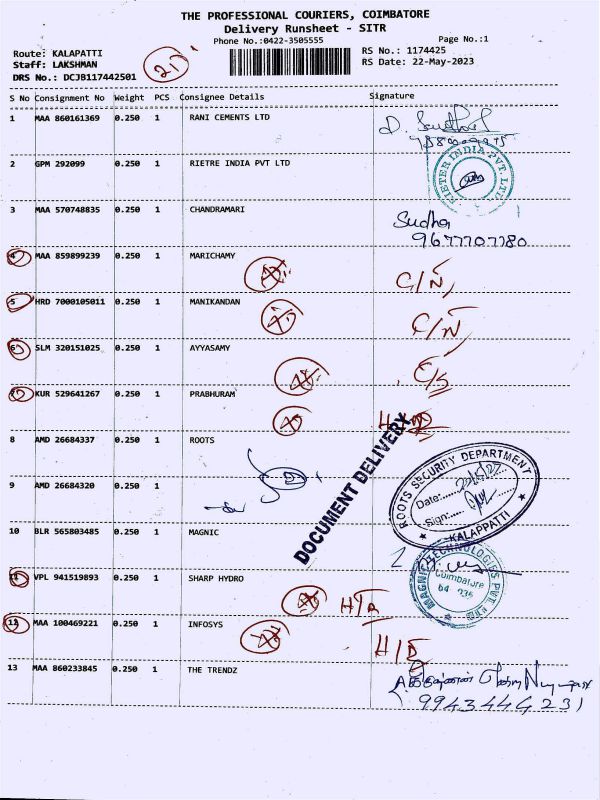 THE PROFESSIONAL COURIERS, COIMBATORE
Delivery Runsheet - SITR
Phone No.:0422-3505555
Page No.:1
Route: KALAPATTI
Staff: LAKSHMAN
DRS No.: DCJB117442501
21
RS No.: 1174425
RS Date: 22-May-2023
S No Consignment No Weight PCS Consignee Details Signature
1 MAA 860161369 0.250 1 RANI CEMENTS LTD
2 GPM 292099 0.250 1 RIETRE INDIA PVT LTD
RIETER INDIA PVT. LTD
3 MAA 570748835 0.250 1 CHANDRAMARI
Sudha
9677707780
4 MAA 859899239 0.250 1 MARICHAMY
C/N
5 HRD 7000105011 0.250 1 MANIKANDAN
C/N
6 SLM 320151025 0.250 1 AYYASAMY
C/S
7 KUR 529641267 0.250 1 PRABHURAM
8 AMD 26684337 0.250 1 ROOTS
DOCUMENT DELIVERY
9 AMD 26684320 0.250 1
ROOTS SECURITY DEPARTMENT
Date:
Sign:
KALAPPATTI
10 BLR 565803485 0.250 1 MAGNIC
MAGNIC TECHNOLOGIES PVT. LTD
Coimbatore
11 VPL 941519893 0.250 1 SHARP HYDRO
12 MAA 100469221 0.250 1 INFOSYS
13 MAA 860233845 0.250 1 THE TRENDZ
9943444231